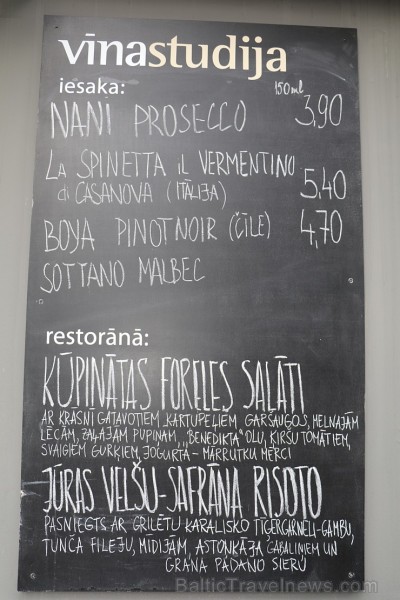 vīnastudija
iesaka: 150ml
NANI PROSECCO 3,90
LA SPINETTA IL VERMENTINO
di CASANOVA (ITĀLIJA) 5,40
BOYA PINOT NOIR (ČĪLE) 4,70
SOTTANO MALBEC
restorānā:
KŪPINĀTAS FORELES SALĀTI
AR KRĀSNĪ GATAVOTIEM KARTUPEĻIEM GARŠAUGOS, MELNAJĀM
LĒCĀM, ZAĻAJĀM PUPIŅĀM, "BENEDIKTA" OLU, ĶIRŠU TOMĀTIEM,
SVAIGIEM GURĶIEM, JOGURTA - MĀRRUTKU MĒRCI
JŪRAS VELŠU-SAFRĀNA RISOTO
PASNIEGTS AR GRILĒTU KARALISKO TĪĢERGARNELI-GAMBU,
TUNČA FILEJU, MĪDIJĀM, ASTOŅKĀJA GABALIŅIEM UN
GRANA PADANO SIERU
BalticTravelnews.com